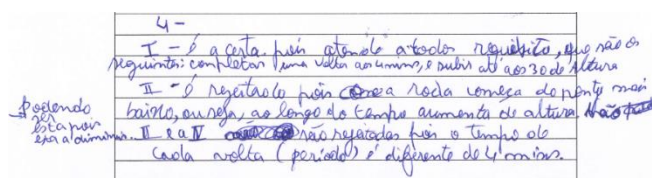 4-
I - é a certa pois atende a todos requisito, que são os
seguintes: completar uma volta aos 4 mins, e subir até aos 30 de altura
II - é rejeitado pois a roda começa do ponto mais
baixo, ou seja, ao longo do tempo aumenta de altura. não
podendo
ser
esta pois
esta a diminuir.
III e a IV são rejeitadas pois o tempo de
cada volta (período) é diferente de 4 mins.